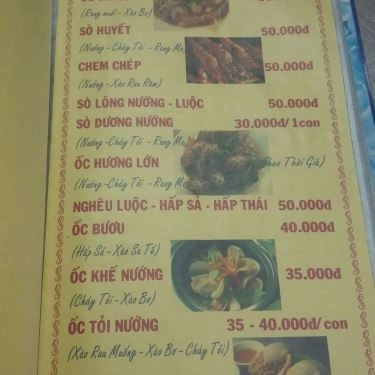 (Rang muối - Xào Bơ)
SÒ HUYẾT 50.000đ
(Nướng - Cháy Tỏi - Rang Me)
CHEM CHÉP 50.000đ
(Nướng - Xào Rau Răm)
SÒ LÔNG NƯỚNG - LUỘC 50.000đ
SÒ DƯƠNG NƯỚNG 30.000đ/1con
(Nướng - Cháy Tỏi - Rang Me)
ỐC HƯƠNG LỚN Theo Thời Giá)
(Nướng - Cháy Tỏi - Rang M
NGHÊU LUỘC - HẤP SẢ - HẤP THÁI 50.000đ
ỐC BƯƠU 40.000đ
(Hấp Sả - Xào Sa Tế)
ỐC KHẾ NƯỚNG 35.000đ
(Cháy Tỏi - Xào Bơ)
ỐC TỎI NƯỚNG 35 - 40.000đ/con
(Xào Rau Muống - Xào Bơ - Cháy Tỏi)